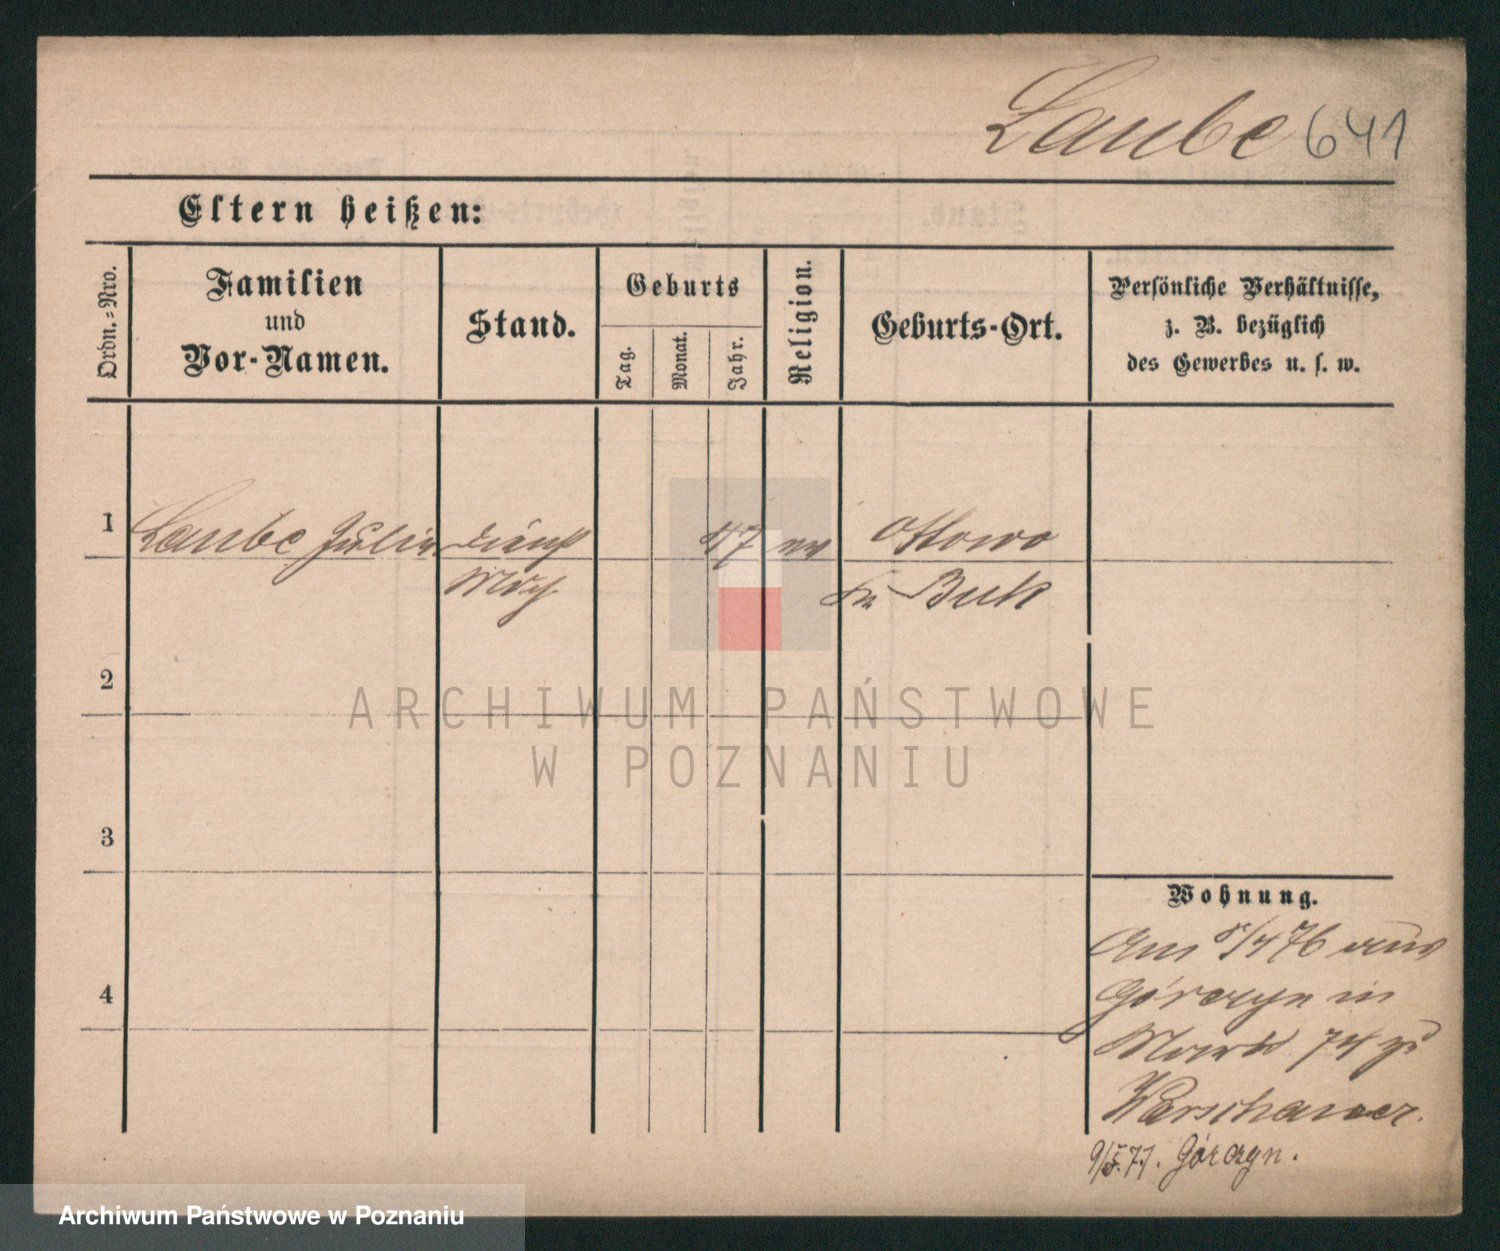 Laube 641
Eltern heißen:
Ordn.-Nro.
Familien
und
Vor-Namen.
Stand.
Geburts
Tag.
Monat.
Jahr.
Religion.
Geburts-Ort.
Persönliche Verhältnisse,
z. B. bezüglich
des Gewerbes u. s. w.
1 Laube Julie 47 ev Ottowo
Kr Buk
2
3
4
Wohnung.
Am 8/4 76 aus
Górczyn in
Markt 74 zu
Warschauer.
9/5.77. Górczyn.
ARCHIWUM PAŃSTWOWE
W POZNANIU
Archiwum Państwowe w Poznaniu